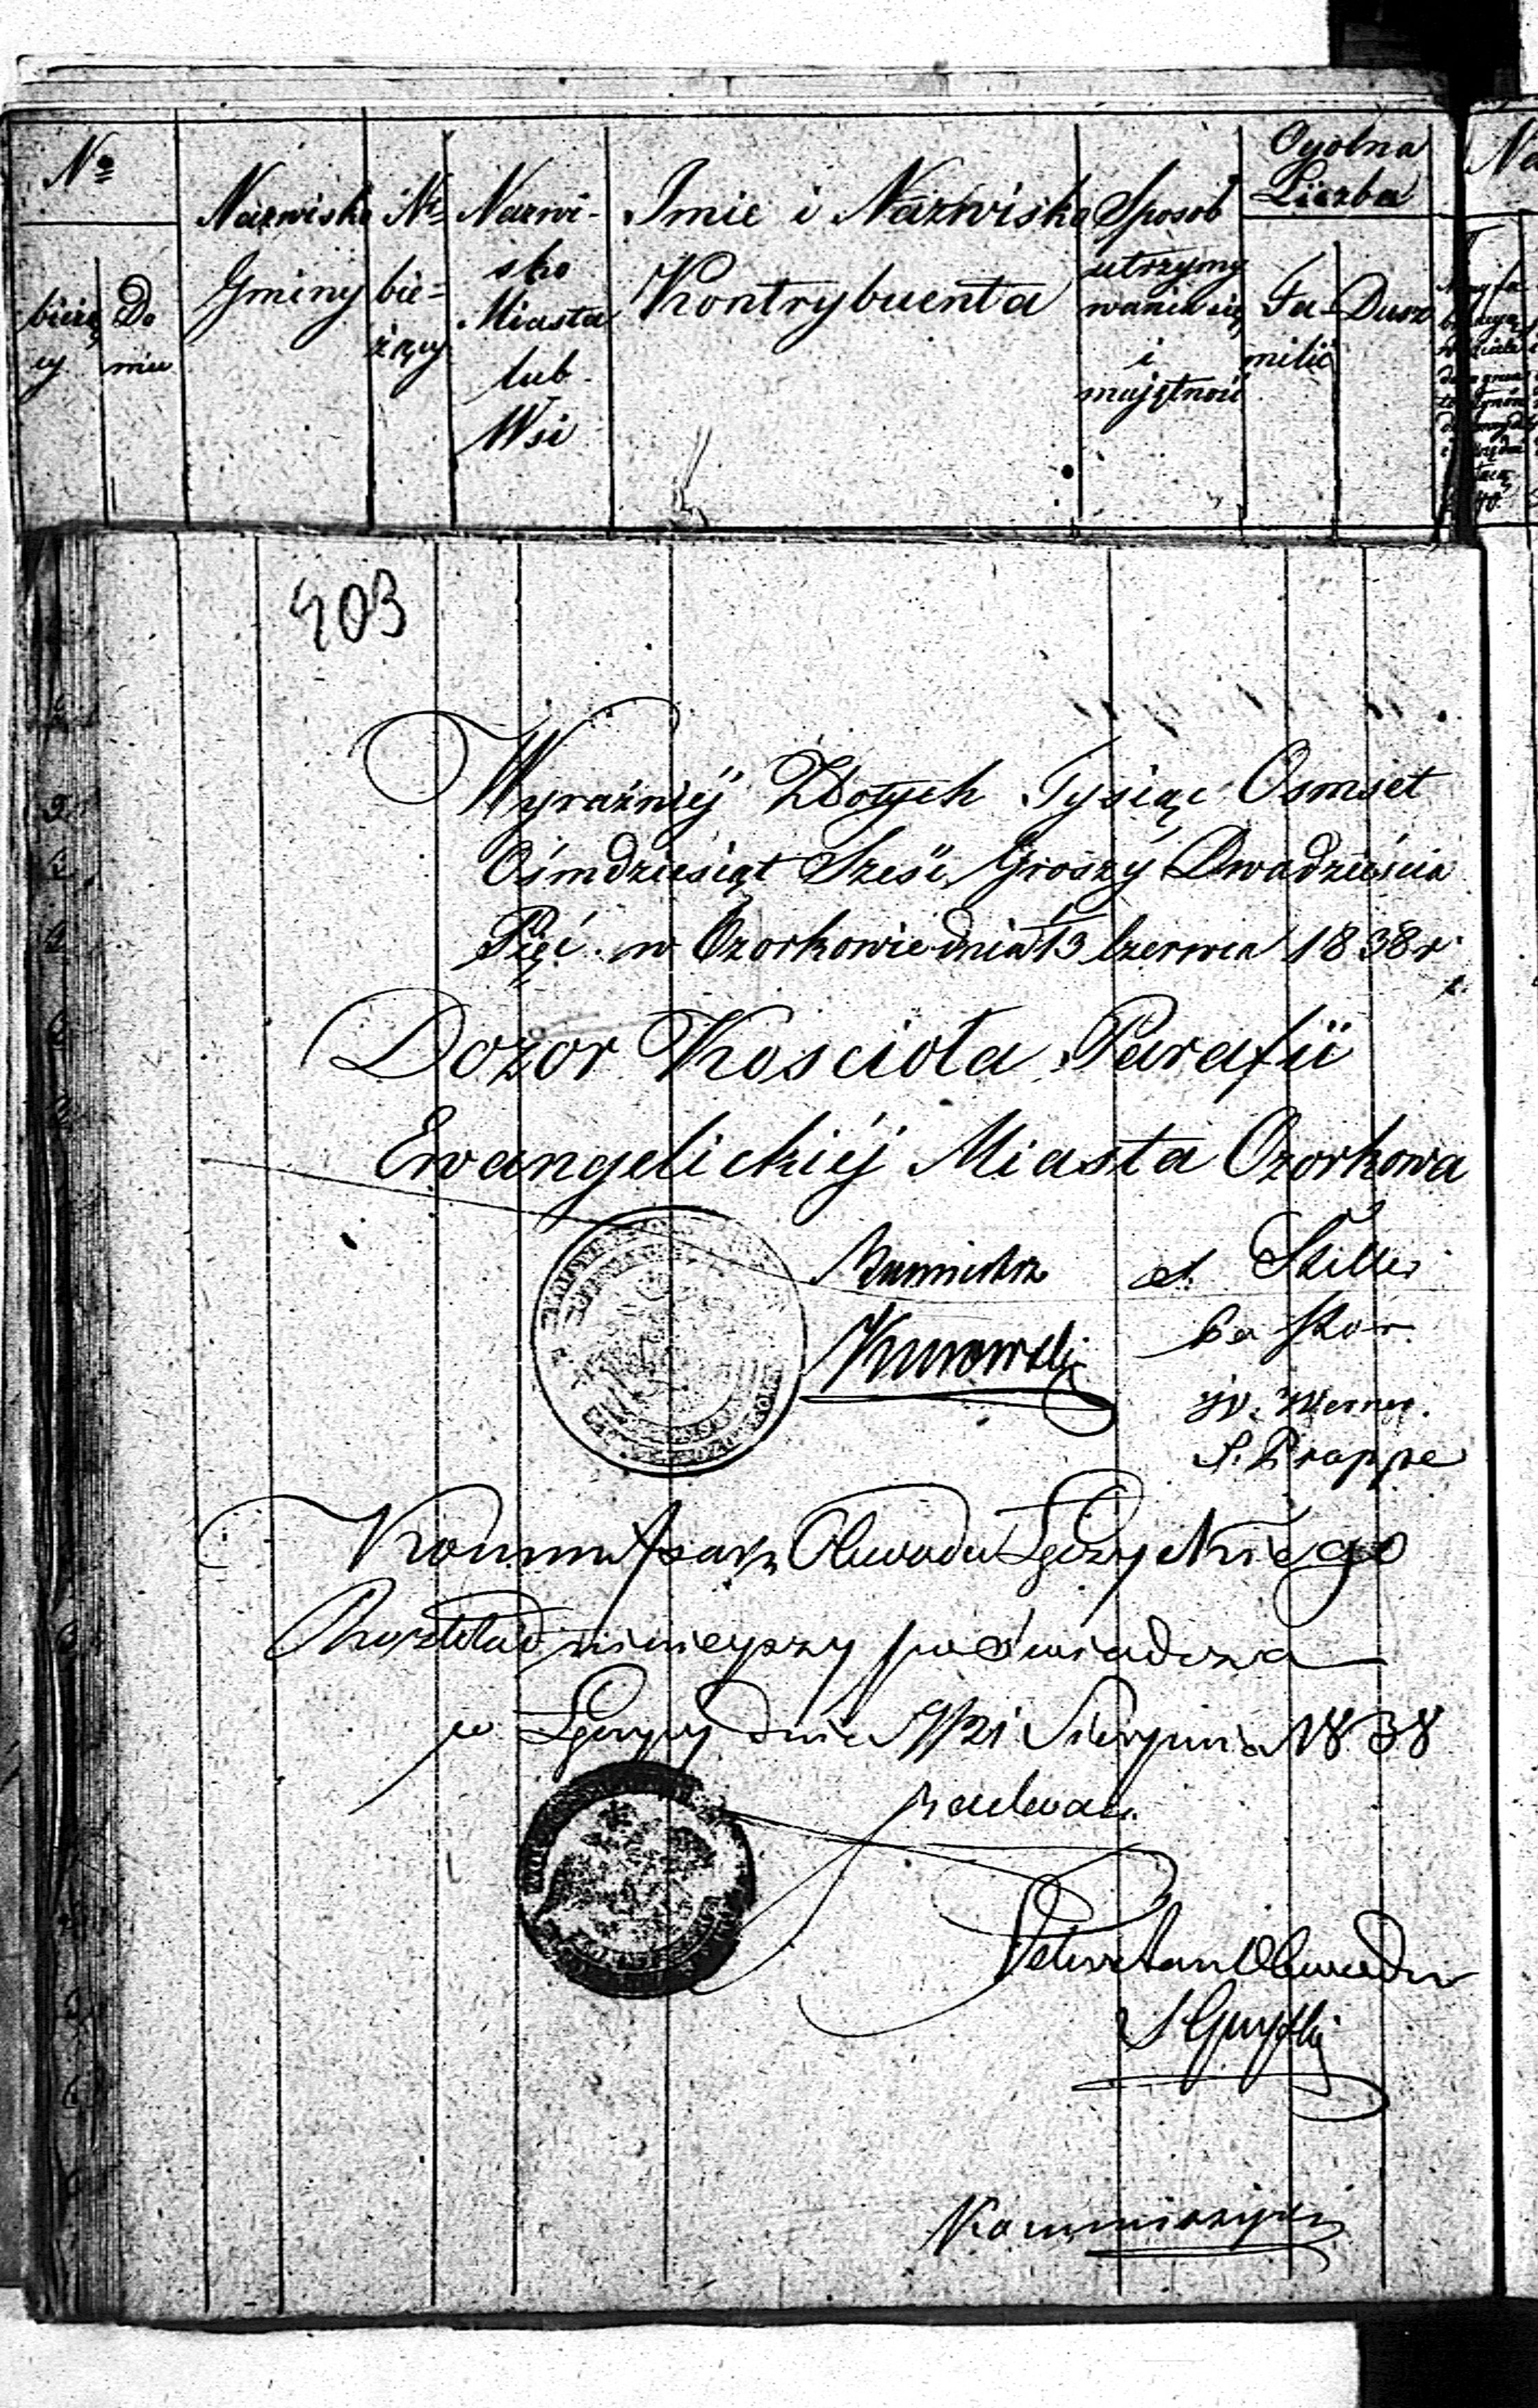 Nº
bieżą
cy
Do
mu
Nazwisko
Gminy
Nr
bie=
żący
Nazwi-
sko
Miasta
lub
Wsi
Imie i Nazwisko
Kontrybuenta
Sposob
utrzymy
wania się
i
majętność
Ogolna
Liczba
Fa-
milii
Dusz
403
Wyraźniéj Złotych Tysiąc Osmset
Ośmdziesiąt Sześć Groszy Dwadzieścia
Pięć w Ozorkowie dnia 13 Czerwca 1838 r
Dozor Kosciola Parafii
Ewangelickiéj Miasta Ozorkowa
Burmistrz
Kurowski
Stiller
Pastor
W. Werner.
Prappe
Kommissarz Obwodu Łęczyckiego
Rozkład ninieyszy poświadcza
w Łęczycy dnia 9/21 Sierpnia 1838
Sekretarz Obwodu